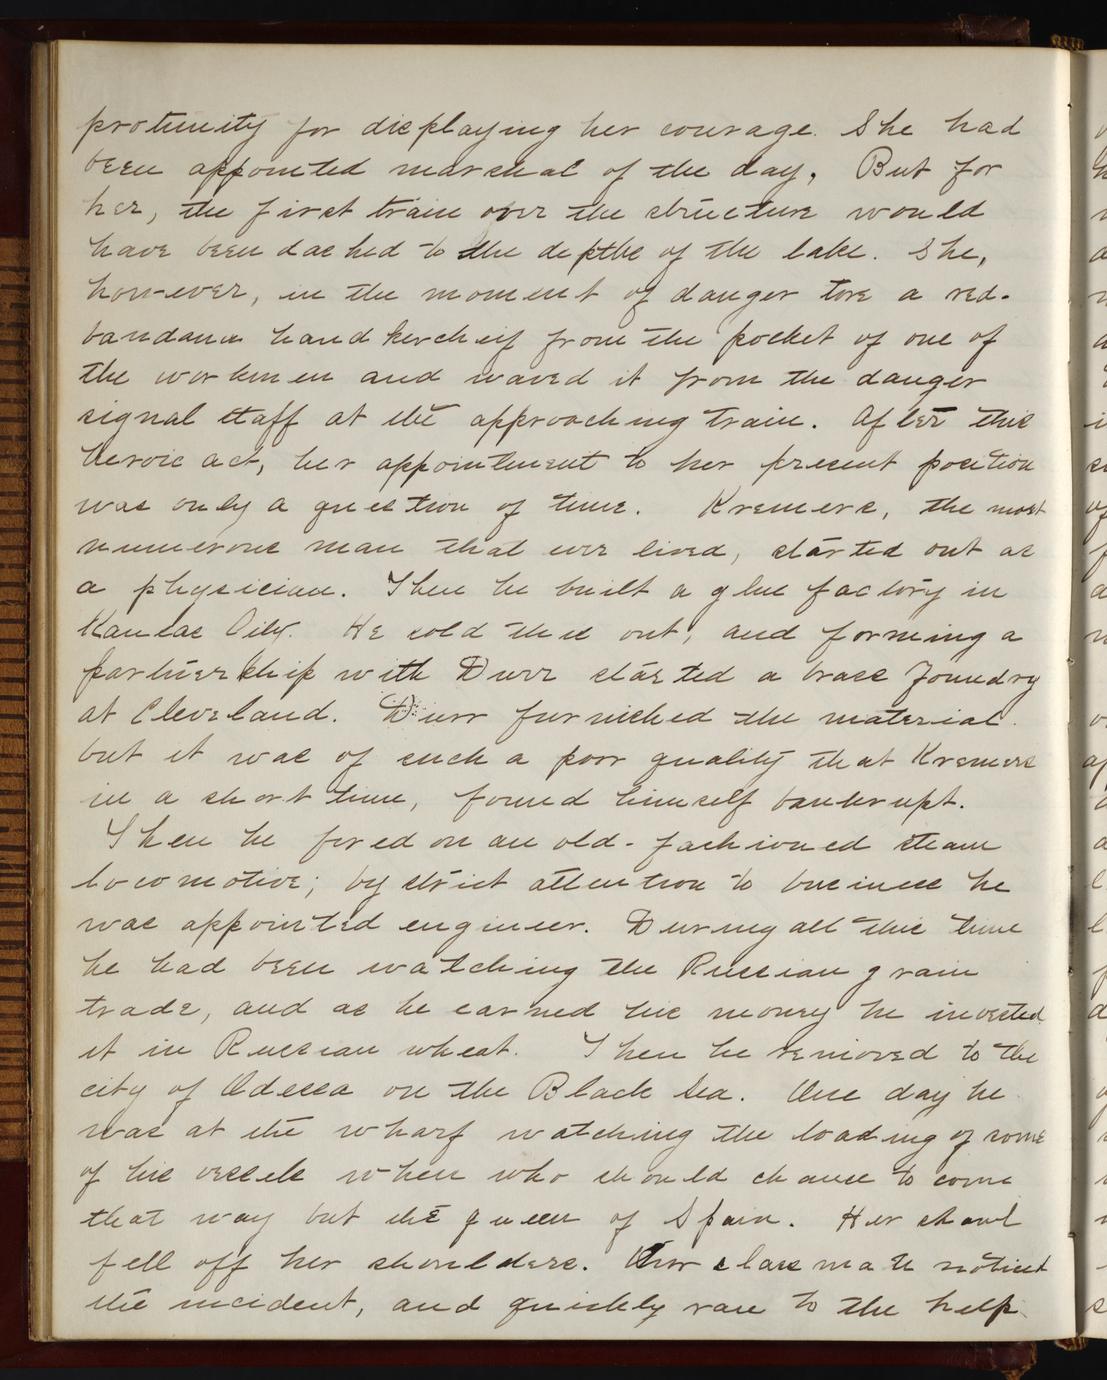 protunity for displaying her courage. She had
been appointed marshal of the day, But for
her, the first train over the structure would
have been dashed to the depths of the lake. She,
however, in the moment of danger tore a red-
bandana handkercheif from the pocket of one of
the workmen and waved it from the danger
signal staff at the approaching train. After this
heroic act, her appointment to her present position
was only a question of time. Kremers, the most
numerous man that ever lived, started out as
a physician. Then he built a glue factory in
Kansas City. He sold this out, and forming a
partnership with Durr started a brass foundry
at Cleveland. Durr furnished the material.
but it was of such a poor quality that Kremers
in a short time, found himself bankrupt.
Then he fired on an old-fashioned steam
locomotive; by strict attention to business he
was appointed engineer. During all this time
he had been watching the Russian grain
trade, and as he earned his money he invested
it in Russian wheat. Then he removed to the
city of Odessa on the Black Sea. One day he
was at the wharf watching the loading of some
of his vessels when who should chance to come
that way but the queen of Spain. Her shawl
fell off her shoulders. Our classmate noticed
the incident, and quickly ran to the help